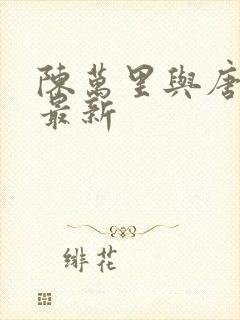 陳萬里與唐
最新
緋花